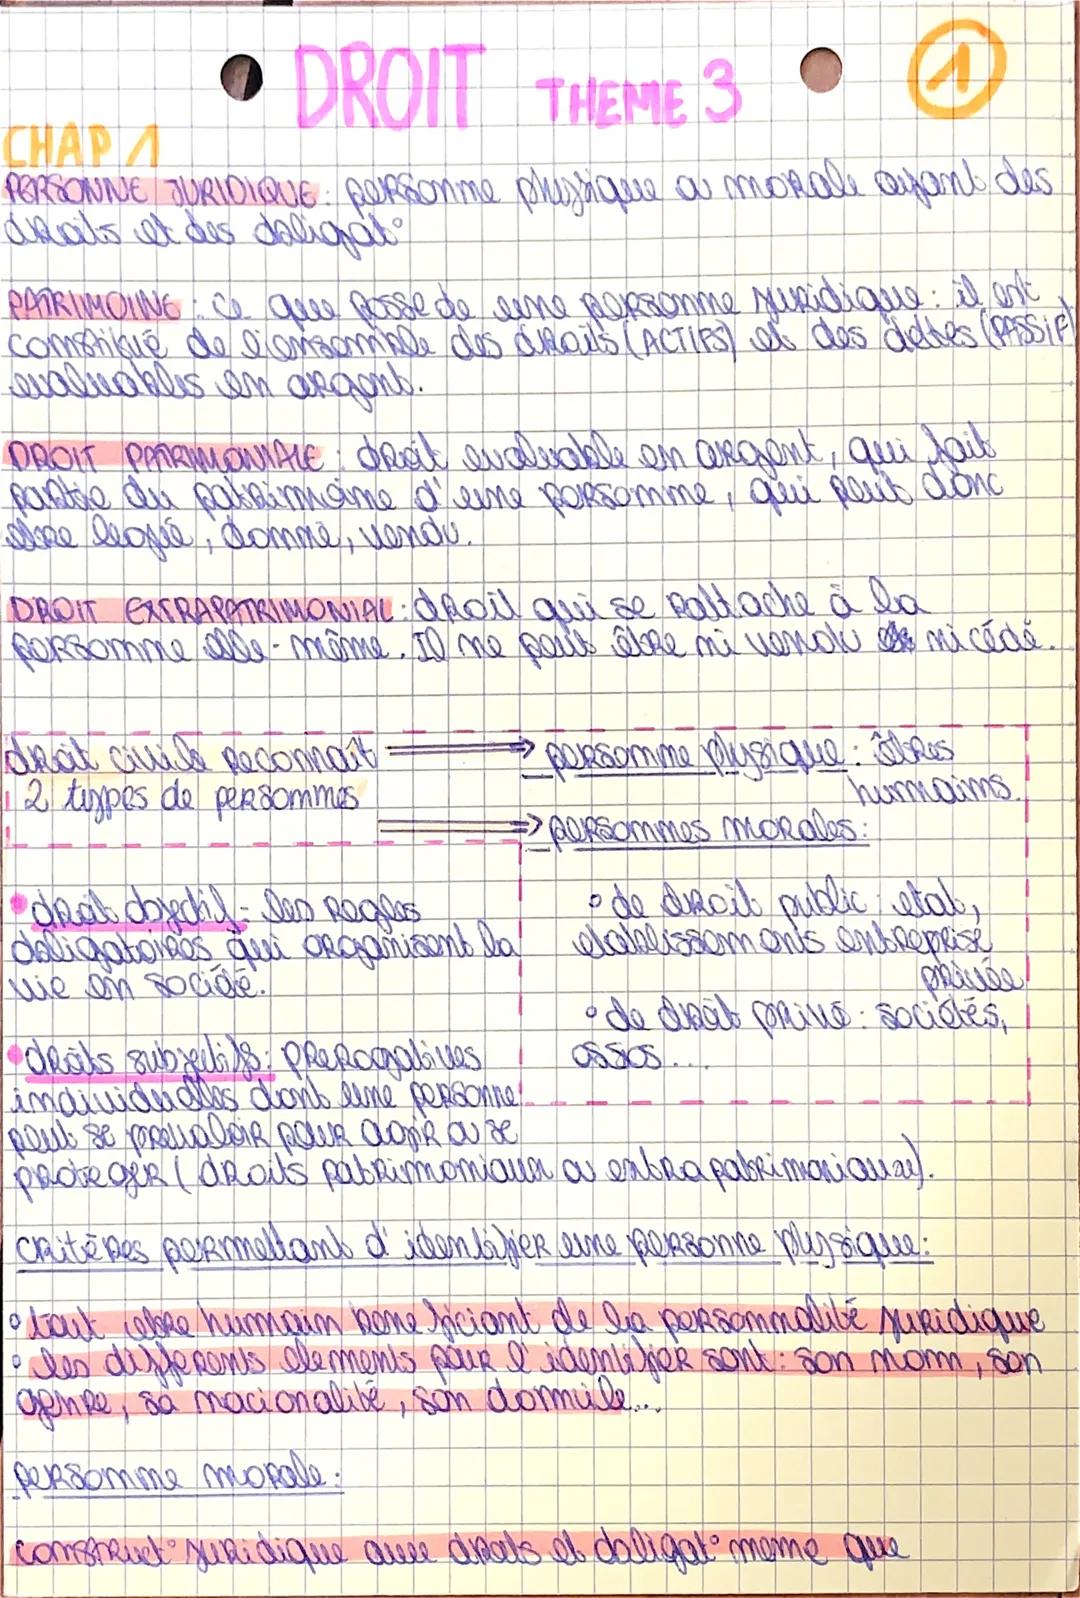 DROIT THEME 3
1
CHAP 1
PERSONNE JURIDIQUE : personne physique ou morale ayant des
droits et des obligat°
PATRIMOINE : Ce que possede une personne juridique : il est
constitué de l'ensemble des droits (ACTIFS) et des dettes (PASSIF)
evaluables en argent.
DROIT PATRIMONIALE : droit evaluable en argent, qui fait
partie du patrimoine d'une personne, qui peut donc
etre legué, donné, vendu.
DROIT EXTRAPATRIMONIAL : droit qui se rattache à la
personne elle-même. Il ne peut être ni vendu ni cédé.
droit civile reconnaît
2 types de personnes
personne physique : êtres
humains.
personnes morales :
de droit public : etat,
etablissements entreprise
privée
de droit privé : sociétés,
assos...
droit objectif = les regles
obligatoires qui organisent la
vie en société.
droits subjectifs : prerogatives
individuelles dont une personne
peut se prevaloir pour agir ou se
proteger (droits patrimoniaux ou extrapatrimoniaux).
critères permettant d'identifier une personne physique :
tout etre humain beneficiant de la personnalité juridique
les differents elements pour l'identifier sont : son nom, son
genre, sa nacionalité, son domicile...
personne morale :
construct° juridique avec droits et obligat° meme que